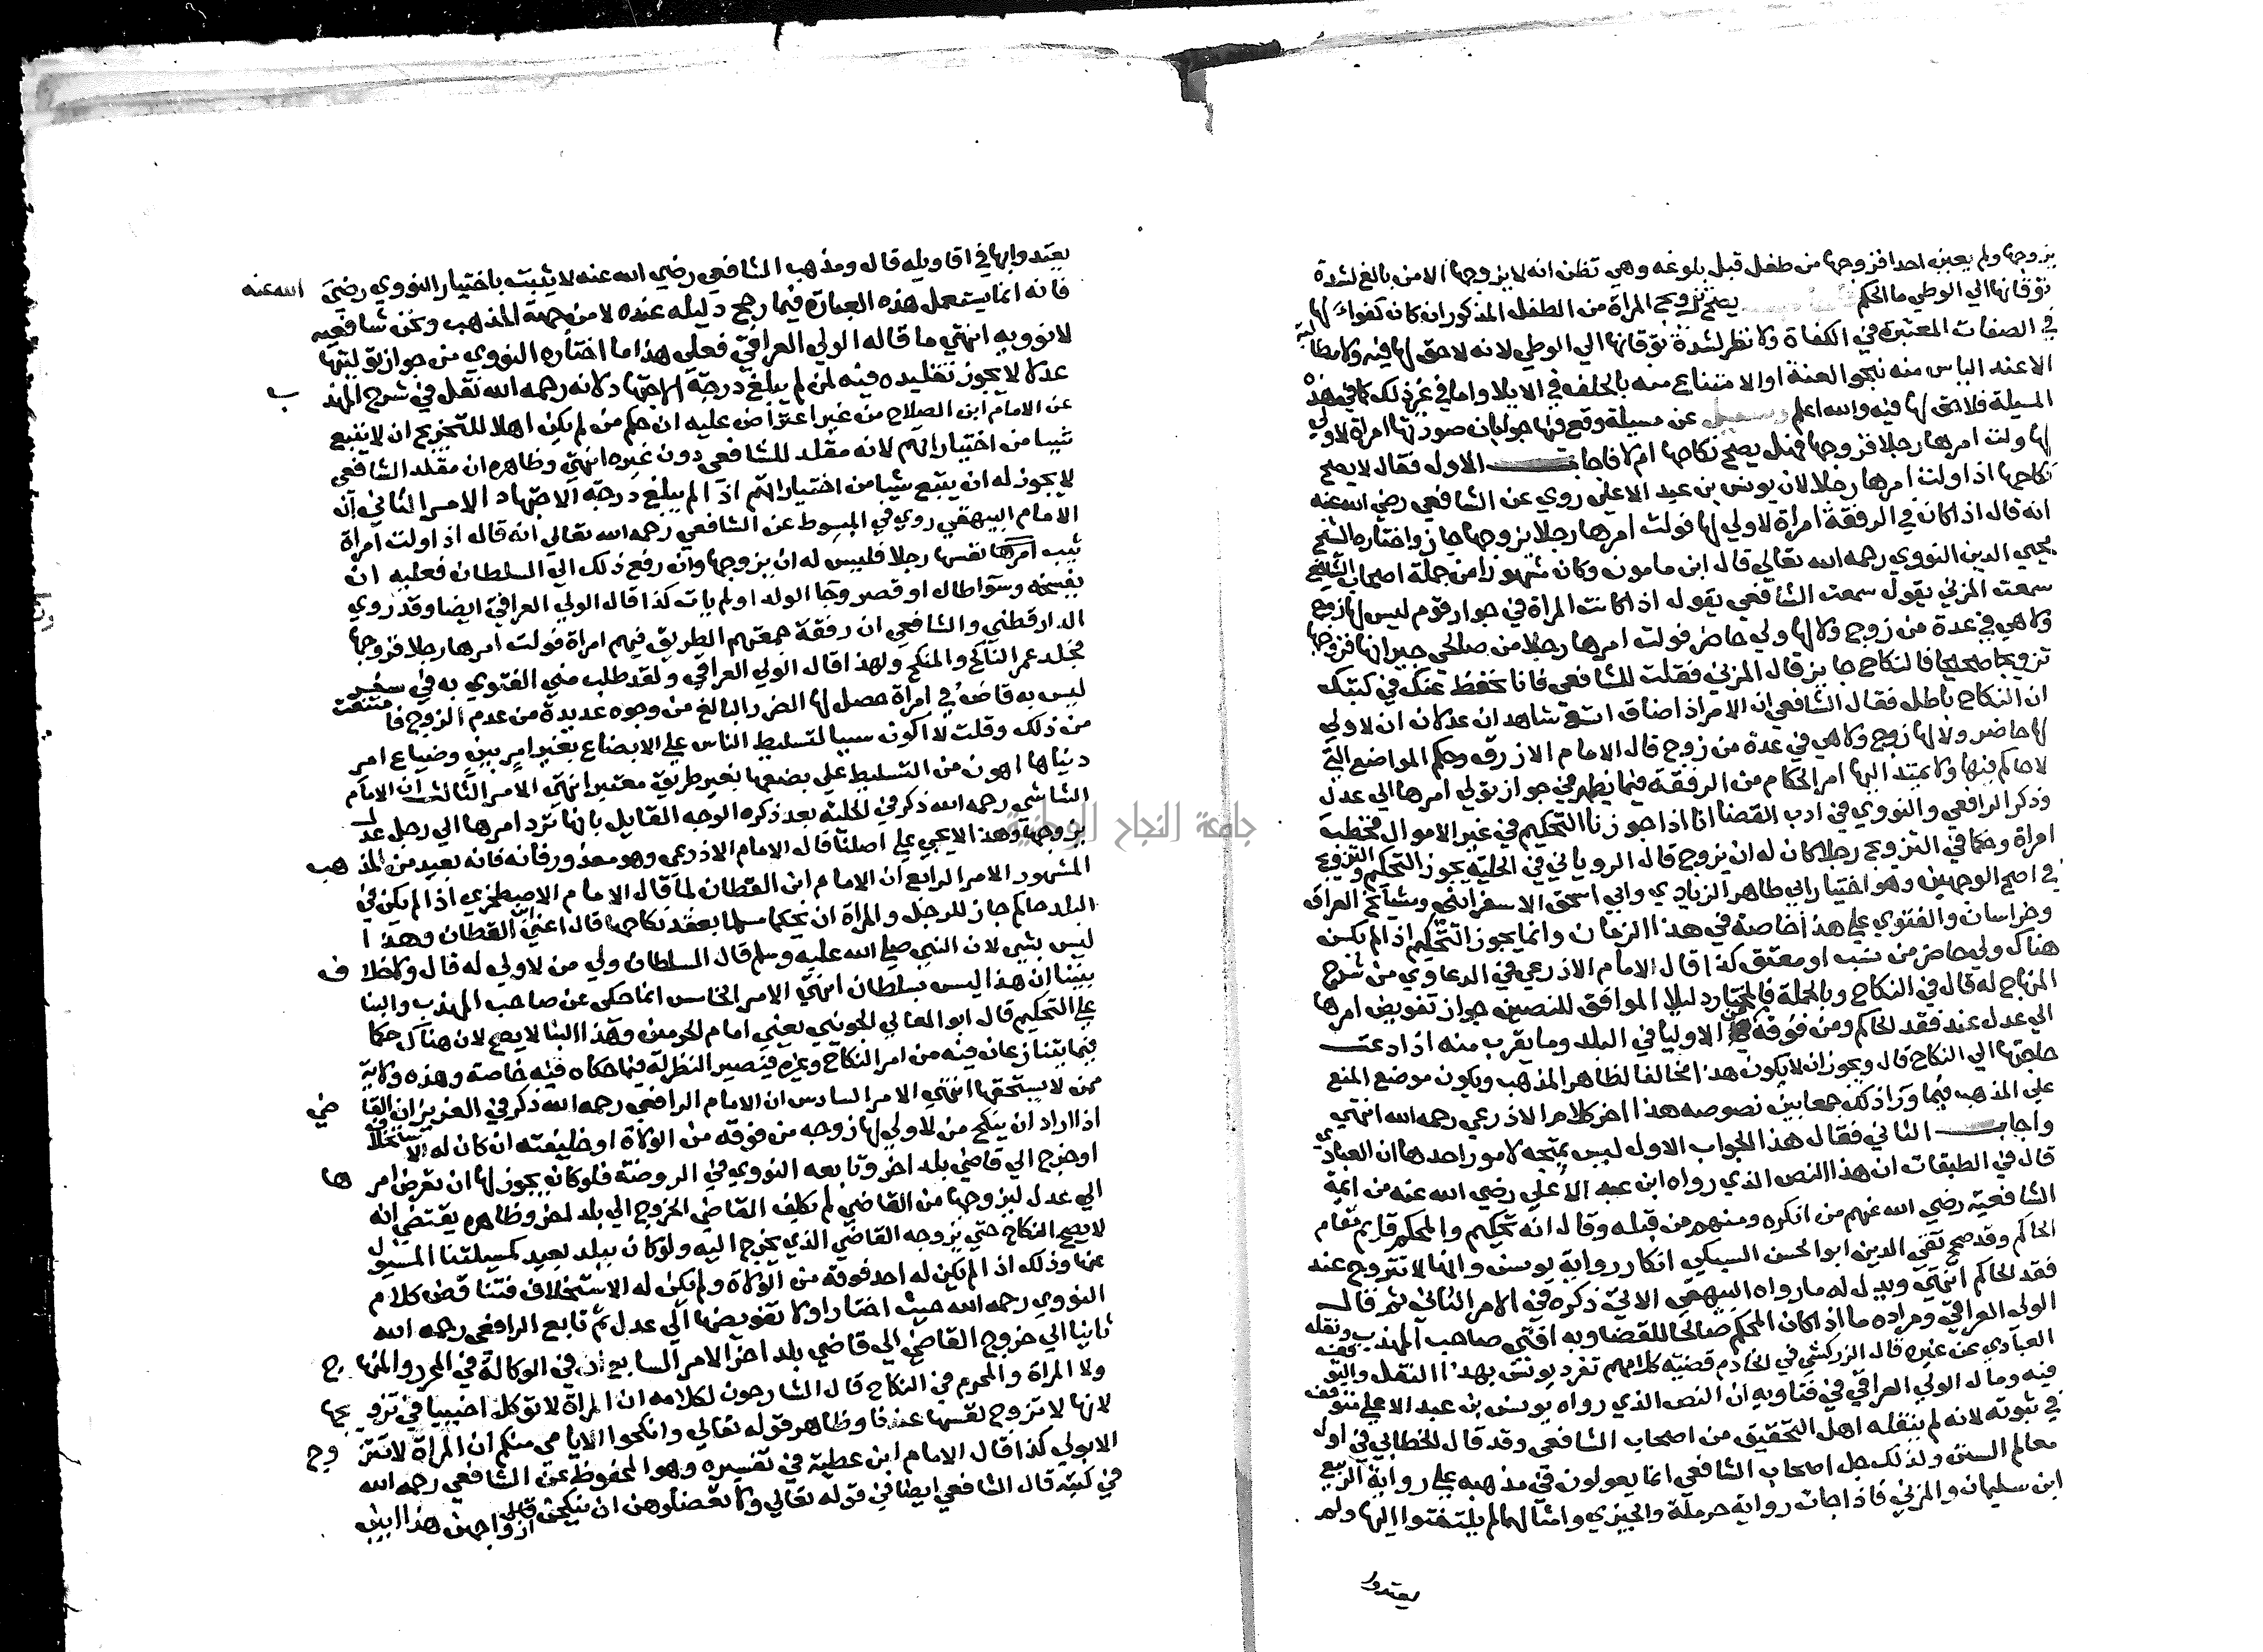 يزوجها ولم يعين احدا فزوجها من طفل قبل بلوغه وهي تظن انه لا يزوجها الا من بالغ لشدة
توقانها الي الوطي ما الحكم يصح تزويج المراة من الطفل المذكور ان كان كفواء لها
في الصفات المعتبرة في الكفاة ولا نظر لشدة توقانها الي الوطي لانه لا حق لها فيه ولا مطالبة
الا عند الياس منه بنحو العنة او الامتناع منه بالحلف في الايلا واما في غير ذلك كما في هذه
المسيلة فلا حق لها فيه والله اعلم وسيل عن مسيلة وقع فيها جوابان صورتها امراة لا ولي
لها ولت امرها رجلا فزوجها فهل يصح نكاحها ام لا فاجاب الاول فقال لا يصح
نكاحها اذا ولت امرها رجلا لان يونس بن عبد الاعلي روي عن الشافعي رضي الله عنه
انه قال اذا كان في الرفقة امراة لا ولي لها فولت امرها رجلا يزوجها جاز واختاره الشيخ
محيي الدين النووي رحمه الله تعالي قال ابن مامون وكان مشهورا من جملة اصحاب الشافعي
سمعت المزني يقول سمعت الشافعي يقول اذا كانت المراة في جوار قوم ليس لها زوج
ولا هي في عدة من زوج ولا لها ولي حاضر فولت امرها رجلا من صالحي جيرانها فزوجها
تزويجا صحيحا فالنكاح جايز قال المزني فقلت للشافعي فانا نحفظ عنك في كتبك
ان النكاح باطل فقال الشافعي ان الامر اذا ضاق اتسع شاهدان عدلان ان لا ولي
لها حاضر ولا لها زوج ولا هي في عدة من زوج قال الامام الازرق وحكم المواضع التي
لا حاكم فيها ولا يمتد اليها امر الحكام من الرفقة فيما يظهر في جواز تولي امرها الي عدل
وذكر الرافعي والنووي في ادب القضا انا اذا جوزنا التحكيم في غير الاموال فخطبة
امراة وحكما في التزويج رجلا كان له ان يزوج قال الروياني في الحلية يجوز التحكيم والتزويج
في اصح الوجهين وهو اختيار ابي طاهر الزيادي وابي اسحق الاسفرايني ومشايخ العراق
وخراسان والفتوي علي هذا خاصة في هذا الزمان وانما يجوز التحكيم اذا لم يكن
هناك ولي حاضر من نسب او معتق كذا قال الامام الاذرعي في الدعاوي من شرح
المنهاج له قال في النكاح وبالجملة فالمختار دليلا الموافق للنصين جواز تفويض امرها
الي عدل عند فقد الحاكم ومن فوقه من الاوليا في البلد وما يقرب منه اذا دعت
حاجتها الي النكاح قال ويجوز ان لا يكون هذا مخالفا لظاهر المذهب ويكون موضع المنع
علي المذهب فيما ورا ذلك جمعا بين نصوصه هذا اخر كلام الاذرعي رحمه الله انتهي
واجاب الثاني فقال هذا الجواب الاول ليس بمتجه لامور احدها ان العبادي
قال في الطبقات ان هذا النص الذي رواه ابن عبد الاعلي رضي الله عنه من ايمة
الشافعية رضي الله عنهم من انكره ومنهم من قبله وقال انه تحكيم والمحكم قايم مقام
الحاكم وقد صحح تقي الدين ابو الحسن السبكي انكار رواية يونس وانها لا تتزوج عند
فقد الحاكم انتهي ويدل له ما رواه البيهقي الاتي ذكره في الامر الثاني ثم قال
الولي العراقي ومراده ما اذا كان المحكم صالحا للقضا وبه افتي صاحب المهذب ونقله
العبادي عن غيره قال الزركشي في الخادم قضية كلامهم تفرد يونس بهذا النقل والتوقف
فيه ومال الولي العراقي في فتاويه ان النص الذي رواه يونس بن عبد الاعلي متوقف
في ثبوته لانه لم ينقله اهل التحقيق من اصحاب الشافعي وقد قال الخطابي في اول
معالم السنن ولذلك جل اصحاب الشافعي انما يعولون في مذهبه علي رواية الربيع
ابن سليمان والمزني فاذا جات رواية حرملة والجيزي وامثالهما لم يلتفتوا اليها ولم
يعتدوا
يعتدوا بها في اقاويله قال ومذهب الشافعي رضي الله عنه لا يثبت باختيار النووي رضي الله عنه
فانه انما يستعمل هذه العبارة فيما رجح دليله عنده لا من جهة المذهب ونحن شافعيه
لا نوويه انتهي ما قاله الولي العراقي فعلي هذا ما اختاره النووي من جواز توليتها
عدلا لا يجوز تقليده فيه لمن لم يبلغ درجة الاجتهاد لانه رحمه الله نقل في شرح المهذب
عن الامام ابن الصلاح من غير اعتراض عليه ان حكم من لم يكن اهلا للتخريج ان لا يتبع
شيبا من اختياراتهم لانه مقلد للشافعي دون غيره انتهي وظاهره ان مقلد الشافعي
لا يجوز له ان يتبع شيا من اختياراتهم اذا لم يبلغ درجة الاجتهاد الامر الثاني انه
الامام البيهقي روي في المبسوط عن الشافعي رحمه الله تعالي انه قال اذا ولت امراة
ثيب امرها نفسها رجلا فليس له ان يزوجها وان رفع ذلك الي السلطان فعليه ان
يفسخه وسوا طال او قصر وجا الولد او لم يات كذا قال الولي العراقي ايضا وقد روي
الدارقطني والشافعي ان رفقة جمعتهم الطريق فيهم امراة فولت امرها رجلا فزوجها
فجلد عمر الناكح والمنكح ولهذا قال الولي العراقي ولقد طلب مني الفتوي به في سفر
ليس به قاض في امراة حصل لها الضرر البالغ من وجوه عديدة من عدم الزوج فامتنعت
من ذلك وقلت لا اكون سببا لتسليط الناس علي الابضاع بغير امر بين وضياع امر
دنياها اهون من التسليط علي بضعها بغير طريق معتبر انتهي الامر الثالث ان الامام
الشاشي رحمه الله ذكر في الحلية بعد ذكره الوجه القايل بانها ترد امرها الي رجل عدل
يزوجها وهذا لا يجي علي اصلنا قال الامام الاذرعي وهو معذور فانه فانه بعيد من المذهب
المشهور الامر الرابع ان الامام ابن القطان لما قال الامام الاصطخري اذا لم يكن في
البلد حاكم جاز للرجل والمراة ان يحكما مسلما بعقد نكاحها قال اعني ابن القطان وهذا
ليس بشي لان النبي صلي الله عليه وسلم قال السلطان ولي من لا ولي له قال ولا خلاف
بيننا ان هذا ليس بسلطان انتهي الامر الخامس انما حكي عن صاحب المهذب والبنا
علي التحكيم قال ابو المعالي الجويني يعني امام الحرمين وهذا البنا لا يصح لان هناك حكما
فيما يتنازعان فيه من امر النكاح وغيره فيصير النظر له فيما حكاه فيه خاصة وهذه ولاية
ممن لا يستحقها انتهي الامر السادس ان الامام الرافعي رحمه الله ذكر في العزيز ان القاضي
اذا اراد ان ينكح من لا ولي لها زوجه من فوقه من الولاة او خليفته ان كان له الاستخلاف
او خرج الي قاضي بلد اخر وتابعه النووي في الروضة فلو كان يجوز لها ان تفرض امرها
الي عدل ليزوجها من القاضي لم يكلف القاضي الخروج الي بلد اخر وظاهره يقتضي انه
لا يصح النكاح حتي يزوجه القاضي الذي يخرج اليه ولو كان ببلد بعيد كمسيلتنا المسيول
عنها وذلك اذا لم يكن له احد فوقه من الولاة ولم يكن له الاستخلاف فتناقض كلام
النووي رحمه الله حيث اختار اولا تفويضها الي عدل ثم تابع الرافعي رحمه الله
ثانيا الي خروج القاضي الي قاضي بلد اخر الامر السابع ان في الوكالة في المحرر والمنهاج
ولا المراة والمحرم في النكاح قال الشارحون لكلامه ان المراة لا توكل اجنبيا في تزويجها
لانها لا تزوج نفسها عندنا وظاهر قوله تعالي وانكحوا الايامي منكم ان المراة لا تتزوج
الا بولي كذا قال الامام ابن عطية في تفسيره وهو المحفوظ عن الشافعي رحمه الله
في كتبه قال الشافعي ايضا في قوله تعالي ولا تعضلوهن ان ينكحن ازواجهن قال هذا ابين
جامعة النجاح الوطنية